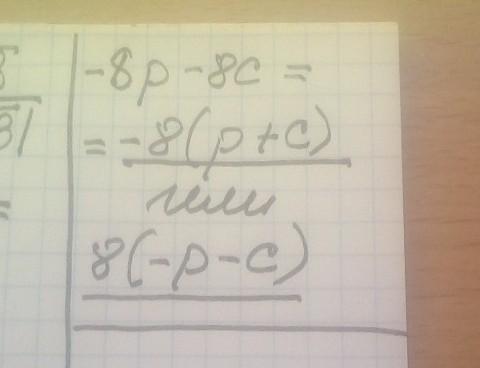 -8p-8c=
=-8(p+c)
или
8(-p-c)